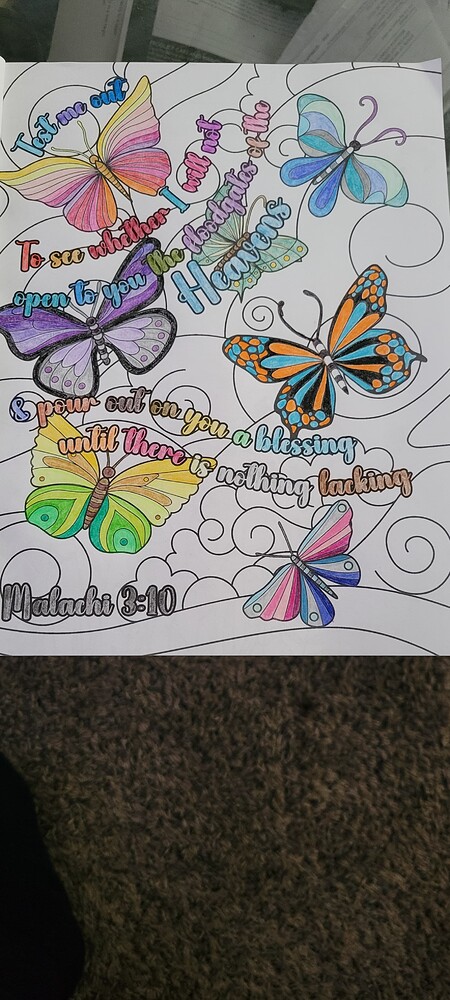 Test me out
To see whether I will not
open to you the floodgates of the
Heavens
& pour out on you a blessing
until there is nothing lacking
Malachi 3:10